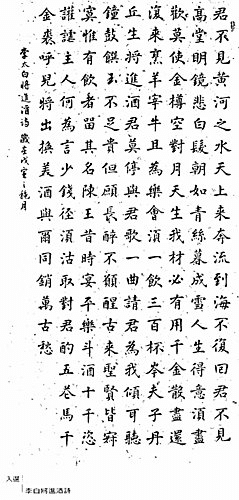 君不見黃河之水天上來奔流到海不復回君不見
高堂明鏡悲白髮朝如青絲暮成雪人生得意須盡
歡莫使金樽空對月天生我材必有用千金散盡還
復來烹羊宰牛且為樂會須一飲三百杯岑夫子丹
丘生將進酒君莫停與君歌一曲請君為我傾耳聽
鐘鼓饌玉不足貴但願長醉不願醒古來聖賢皆寂
寞惟有飲者留其名陳王昔時宴平樂斗酒十千恣
讙謔主人何為言少錢徑須沽取對君酌五花馬千
金裘呼兒將出換美酒與爾同銷萬古愁
李太白將進酒詩 歲在戊寅之月
入選
李白將進酒詩